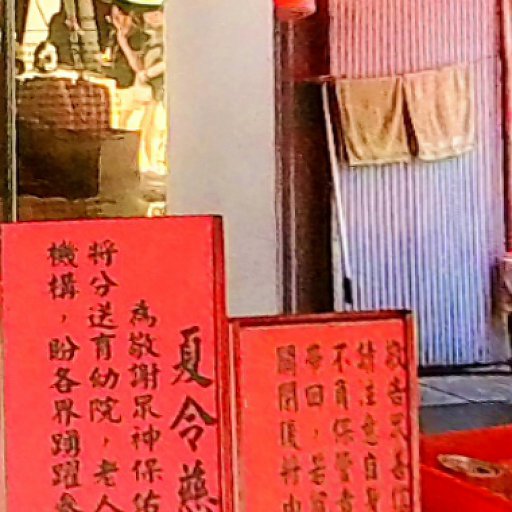 夏令慈
為敬謝眾神保佑
將分送育幼院，老人
機構，盼各界踴躍參
敬告眾善信
請注意自身
不負保管責
帶回，若
關閉後將由